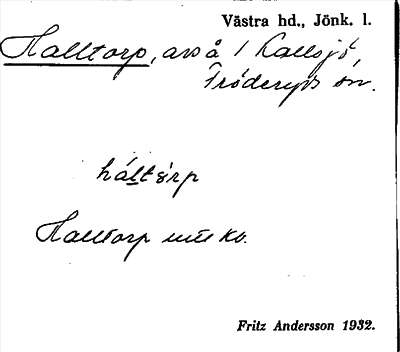 Västra hd., Jönk. l.
Halltorp, avs å 1 Kallsjö,
Fröderyds sn.
hálltòrp
Halltorp mtl Kb.
Fritz Andersson 1932.